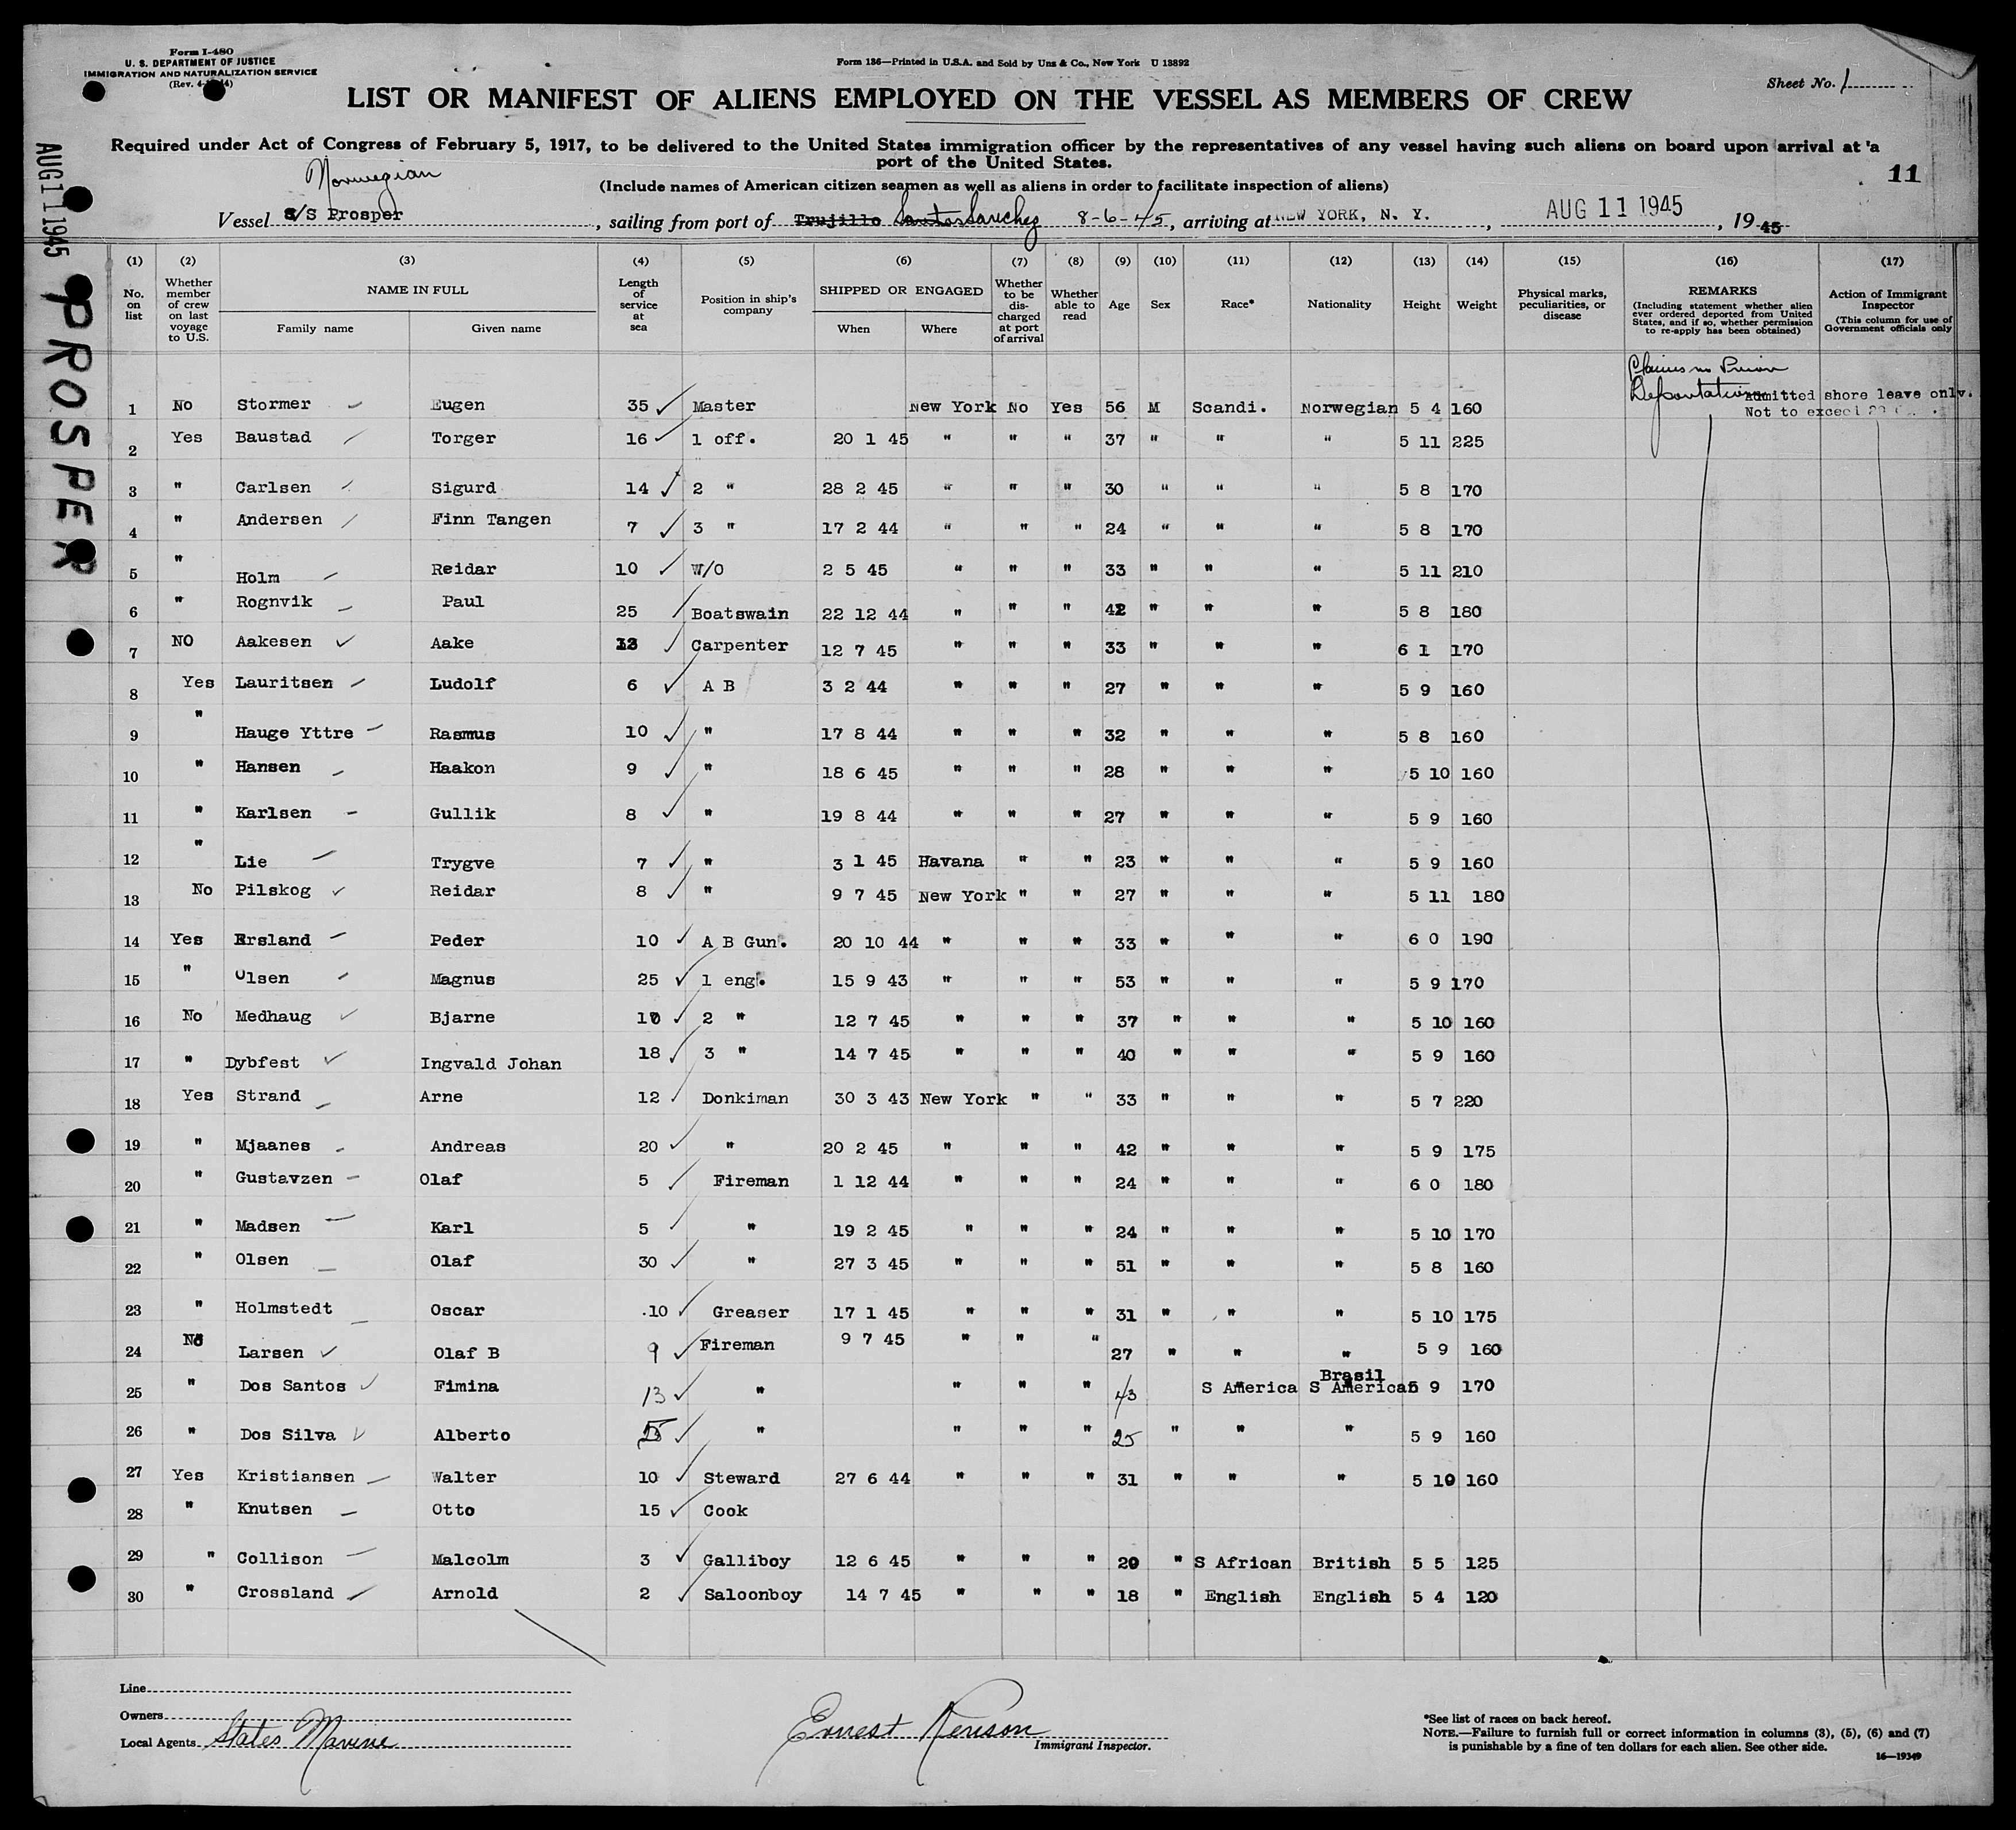 Form I-480
U. S. DEPARTMENT OF JUSTICE
IMMIGRATION AND NATURALIZATION SERVICE
Form 136—Printed in U.S.A. and Sold by Unz & Co., New York U 13892
Sheet No. 1
LIST OR MANIFEST OF ALIENS EMPLOYED ON THE VESSEL AS MEMBERS OF CREW
Required under Act of Congress of February 5, 1917, to be delivered to the United States immigration officer by the representatives of any vessel having such aliens on board upon arrival at a
port of the United States.
11
(Include names of American citizen seamen as well as aliens in order to facilitate inspection of aliens)
Norwegian
Vessel S/S Prosper, sailing from port of Trujillo Santos Sanchez 8-6-45, arriving at NEW YORK, N. Y., AUG 11 1945, 19 45
AUG 11 1945
PROSPER
(1) (2) (3) (4) (5) (6) (7) (8) (9) (10) (11) (12) (13) (14) (15) (16) (17)
No. on list
Whether member of crew on last voyage to U.S.
NAME IN FULL
Family name Given name
Length of service at sea
Position in ship's company
SHIPPED OR ENGAGED
When Where
Whether to be discharged at port of arrival
Whether able to read
Age
Sex
Race*
Nationality
Height
Weight
Physical marks, peculiarities, or disease
REMARKS
(Including statement whether alien ever ordered deported from United States, and if so, whether permission to re-apply has been obtained)
Action of Immigrant Inspector
(This column for use of Government officials only
Claims no Prior
Deportation
Admitted shore leave only.
Not to exceed 29
1 No Stormer Eugen 35 Master New York No Yes 56 M Scandi. Norwegian 5 4 160
2 Yes Baustad Torger 16 1 off. 20 1 45 " " " 37 " " " 5 11 225
3 " Carlsen Sigurd 14 2 " 28 2 45 " " " 30 " " " 5 8 170
4 " Andersen Finn Tangen 7 3 " 17 2 44 " " " 24 " " " 5 8 170
5 " Holm Reidar 10 W/O 2 5 45 " " " 33 " " " 5 11 210
6 " Rognvik Paul 25 Boatswain 22 12 44 " " " 42 " " " 5 8 180
7 NO Aakesen Aake Carpenter 12 7 45 " " " 33 " " " 6 1 170
8 Yes Lauritsen Ludolf 6 A B 3 2 44 " " " 27 " " " 5 9 160
9 " Hauge Yttre Rasmus 10 " 17 8 44 " " " 32 " " " 5 8 160
10 " Hansen Haakon 9 " 18 6 45 " " " 28 " " " 5 10 160
11 " Karlsen Gullik 8 " 19 8 44 " " " 27 " " " 5 9 160
12 " Lie Trygve 7 " 3 1 45 Havana " " 23 " " " 5 9 160
13 No Pilskog Reidar 8 " 9 7 45 New York " " 27 " " " 5 11 180
14 Yes Ersland Peder 10 A B Gun. 20 10 44 " " " 33 " " " 6 0 190
15 " Olsen Magnus 25 1 eng. 15 9 43 " " " 53 " " " 5 9 170
16 No Medhaug Bjarne 2 " 12 7 45 " " " 37 " " " 5 10 160
17 " Dybfest Ingvald Johan 18 3 " 14 7 45 " " " 40 " " " 5 9 160
18 Yes Strand Arne 12 Donkiman 30 3 43 New York " " 33 " " " 5 7 220
19 " Mjaanes Andreas 20 " 20 2 45 " " " 42 " " " 5 9 175
20 " Gustavzen Olaf 5 Fireman 1 12 44 " " " 24 " " " 6 0 180
21 " Madsen Karl 5 " 19 2 45 " " " 24 " " " 5 10 170
22 " Olsen Olaf 30 " 27 3 45 " " " 51 " " " 5 8 160
23 " Holmstedt Oscar 10 Greaser 17 1 45 " " " 31 " " " 5 10 175
24 No Larsen Olaf B 9 Fireman 9 7 45 " " " 27 " " " 5 9 160
25 " Dos Santos Fimina 13 " " " " 43 S America Brasil S American 5 9 170
26 " Dos Silva Alberto " " " " 25 " " " 5 9 160
27 Yes Kristiansen Walter 10 Steward 27 6 44 " " " 31 " " " 5 10 160
28 " Knutsen Otto 15 Cook
29 " Collison Malcolm 3 Galliboy 12 6 45 " " " 20 " S African British 5 5 125
30 " Crossland Arnold 2 Saloonboy 14 7 45 " " " 18 " English English 5 4 120
Line
Owners
Local Agents States Marine
Ernest Kenison
Immigrant Inspector.
*See list of races on back hereof.
NOTE.—Failure to furnish full or correct information in columns (3), (5), (6) and (7)
is punishable by a fine of ten dollars for each alien. See other side.
16—19349